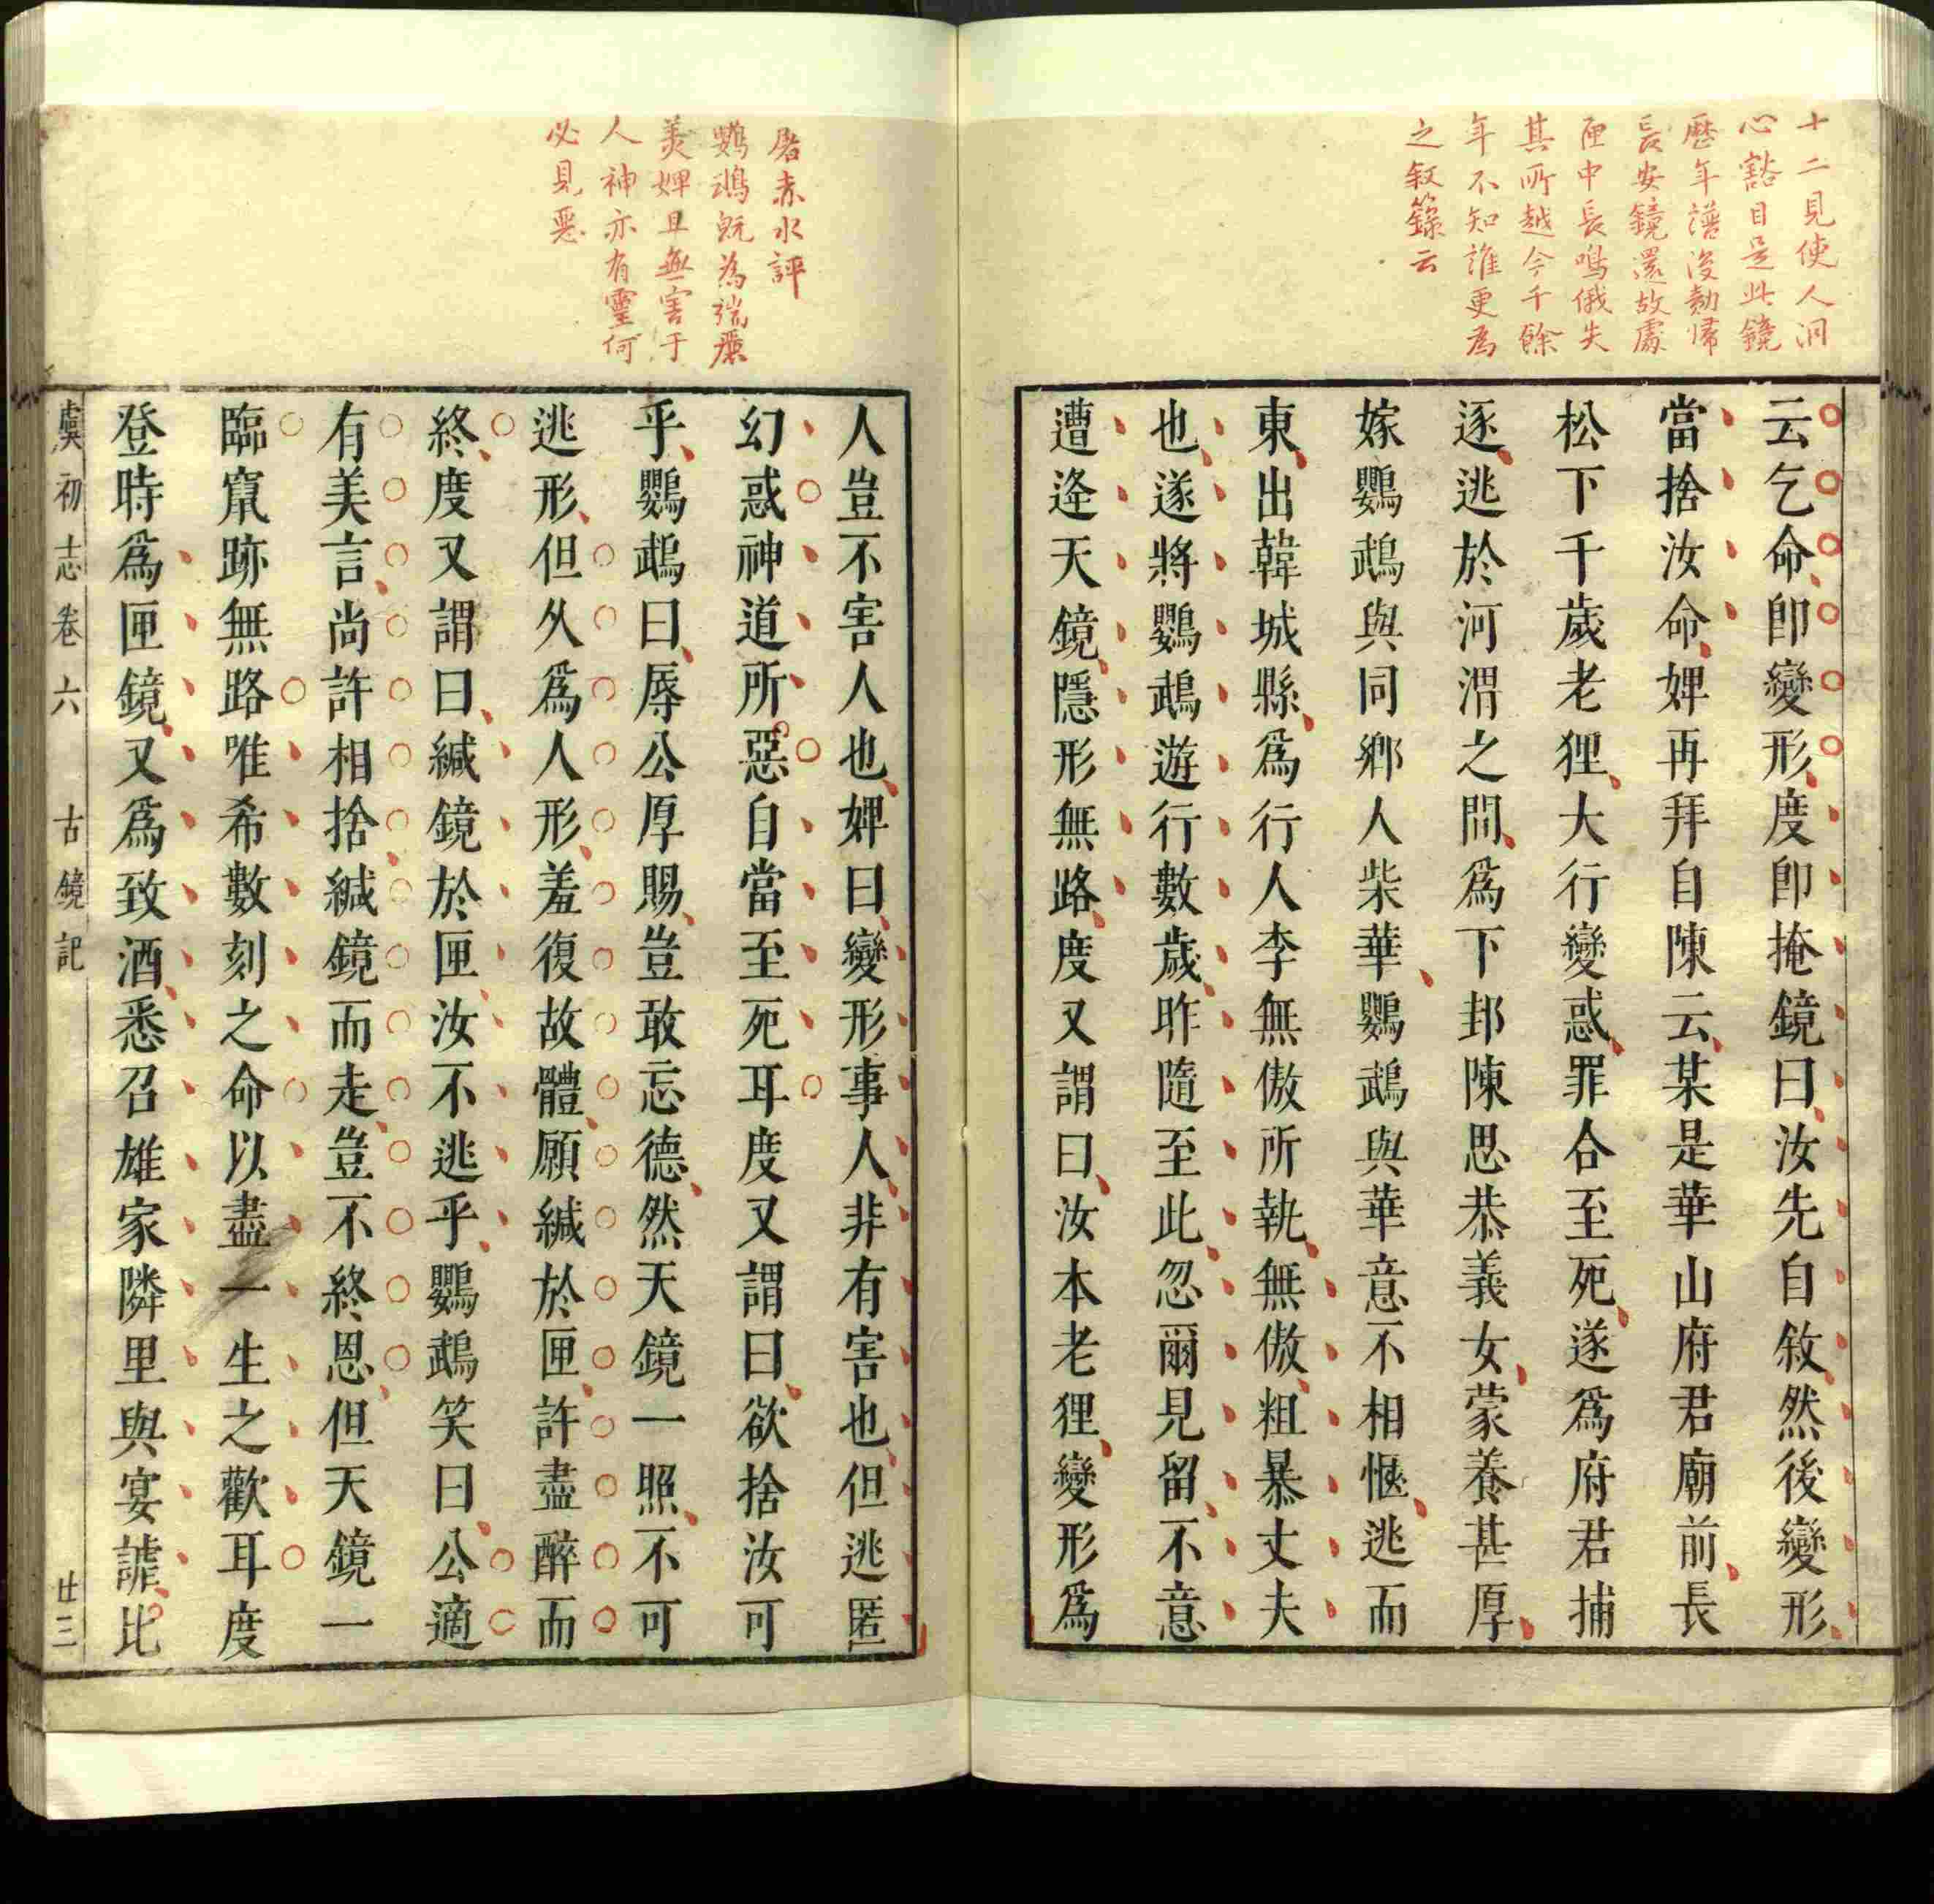 十二見使人洞
心豁目是此鏡
歷年譜後勣歸
長安鏡還故處
匣中長鳴俄失
其所越今千餘
年不知誰更為
之叙籙云
云乞命即變形度即掩鏡曰汝先自敘然後變形
當捨汝命婢再拜自陳云某是華山府君廟前長
松下千歲老狸大行變惑罪合至死遂爲府君捕
逐逃於河渭之間爲下邽陳思恭義女蒙養甚厚
嫁鸚鵡與同鄉人柴華鸚鵡與華意不相愜逃而
東出韓城縣爲行人李無傲所執無傲粗暴丈夫
也遂將鸚鵡遊行數歲昨隨至此忽爾見留不意
遭逢天鏡隱形無路度又謂曰汝本老狸變形爲
屠赤水評
鸚鵡既為端麗
美婢且無害于
人神亦有靈何
必見惡
人豈不害人也婢曰變形事人非有害也但逃匿
幻惑神道所惡自當至死耳度又謂曰欲捨汝可
乎鸚鵡曰辱公厚賜豈敢忘德然天鏡一照不可
逃形但久爲人形羞復故體願緘於匣許盡醉而
終度又謂曰緘鏡於匣汝不逃乎鸚鵡笑曰公適
有美言尚許相捨緘鏡而走豈不終恩但天鏡一
臨竄跡無路唯希數刻之命以盡一生之歡耳度
登時爲匣鏡又爲致酒悉召雄家隣里與宴謔比
虞初志卷六 古鏡記 廿三